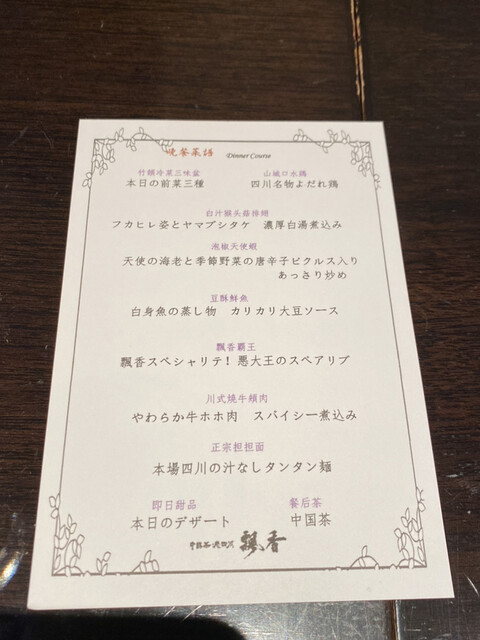 晩餐菜譜 Dinner Course
竹籟冷菜三味盆 山城口水鶏
本日の前菜三種 四川名物よだれ鶏
白汁猴头菇排翅
フカヒレ姿とヤマブシタケ 濃厚白湯煮込み
泡椒天使蝦
天使の海老と季節野菜の唐辛子ピクルス入り
あっさり炒め
豆酥鮮魚
白身魚の蒸し物 カリカリ大豆ソース
飄香覇王
飄香スペシャリテ!悪大王のスペアリブ
川式焼牛頬肉
やわらか牛ホホ肉 スパイシー煮込み
正宗担担面
本場四川の汁なしタンタン麺
即日甜品 餐后茶
本日のデザート 中国茶
飄香